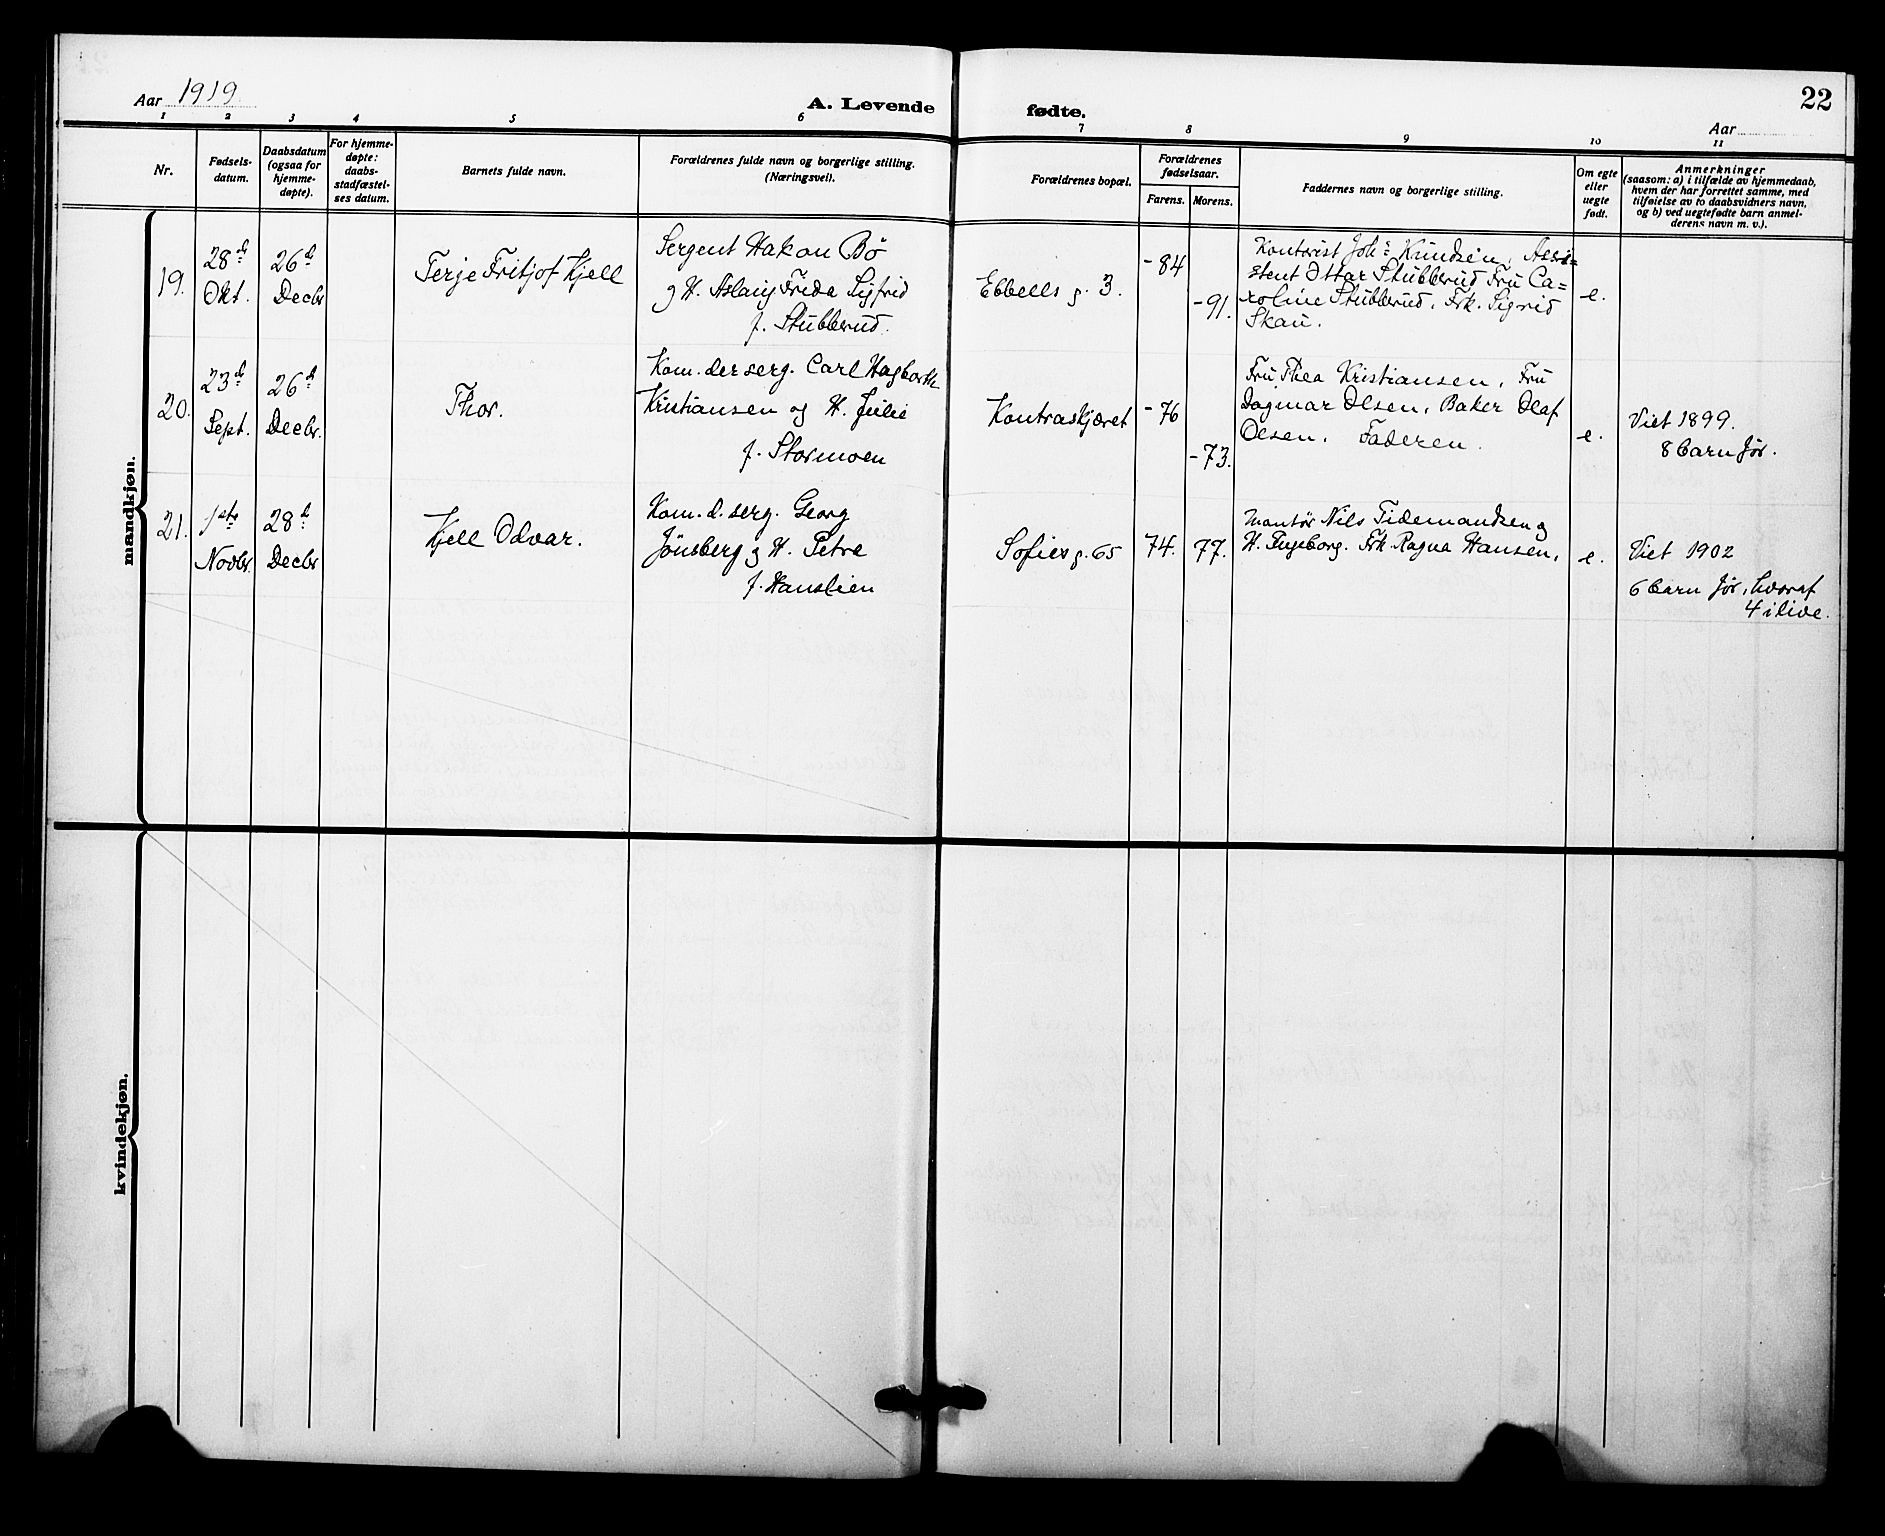 Aar 1919.
A. Levende fødte.
22
Aar
1 2 3 4 5 6 7 8 9 10 11
Nr.
Fødsels-
datum.
Daabsdatum
(ogsaa for
hjemme-
døpte).
For hjemme-
døpte:
daabs-
stadfæstel-
ses datum.
Barnets fulde navn.
Forældrenes fulde navn og borgerlige stilling.
(Næringsvei).
Forældrenes bopæl.
Forældrenes
fødselsaar.
Farens. Morens.
Faddernes navn og borgerlige stilling.
Om egte
eller
uegte
født.
Anmerkninger
(saasom: a) i tilfælde av hjemmedaab,
hvem der har forrettet samme, med
tilføielse av to daabsvidners navn,
og b) ved uegtefødte barn anmel-
derens navn m. v.).
mandkjøn.
19.
28d
Okt.
26d
Decbr
Terje Fritjof Kjell
Sergent Hakon Bø
og H. Aslaug Frida Sigfrid
f. Stubberud.
Ebbells g. 3.
-84
-91.
Kontorist Johs Knudsen, Assi=
stent Ottar Stubberud Fru Ca=
roline Stubberud, Frk. Sigrid
Skau.
e.
20.
23d
Sept.
26d
Decbr.
Thor.
Kom.dersérg. Carl Hagbarth
Kristiansen og H. Julie
f. Stormoen
Kontraskjæret
-76
-73.
Fru Thea Kristiansen, Fru
Dagmar Olsen, Baker Olaf
Olsen. Faderen.
e.
Viet 1899.
8 barn før.
21.
1ste
Novbr.
28d
Decbr
Kjell Odvar.
Kom.d.serg. Georg
Jønsberg og H. Petra
f. Hanslien
Sofies g. 65
74.
77.
Montør Nils Tidemandsen og
H. Ingeborg. Frk. Ragna Hansen,
e.
Viet 1902
6 barn før, hvoraf
4 i live.
kvindekjøn.